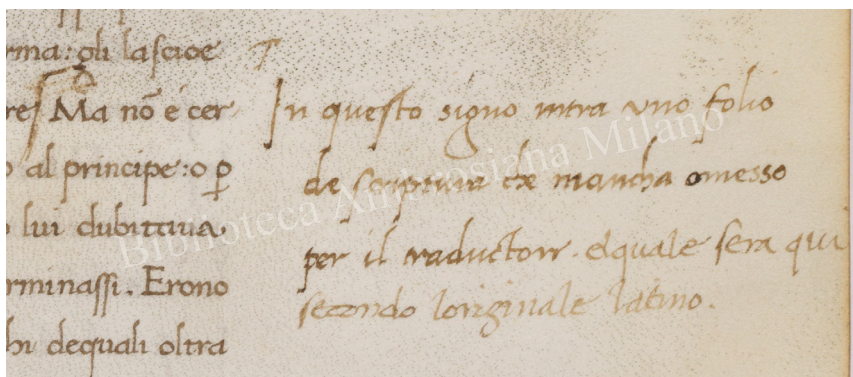 rma: gli lascioe
re Ma nō e cer
al principe: o ꝑ
lui dubittaua
rminassi. Erono
hi dequali oltra
In questo signo intra vno folio
de scriptura che mancha omesso
per il traductore. elquale sera qui
secondo loriginale latino.
Biblioteca Ambrosiana Milano